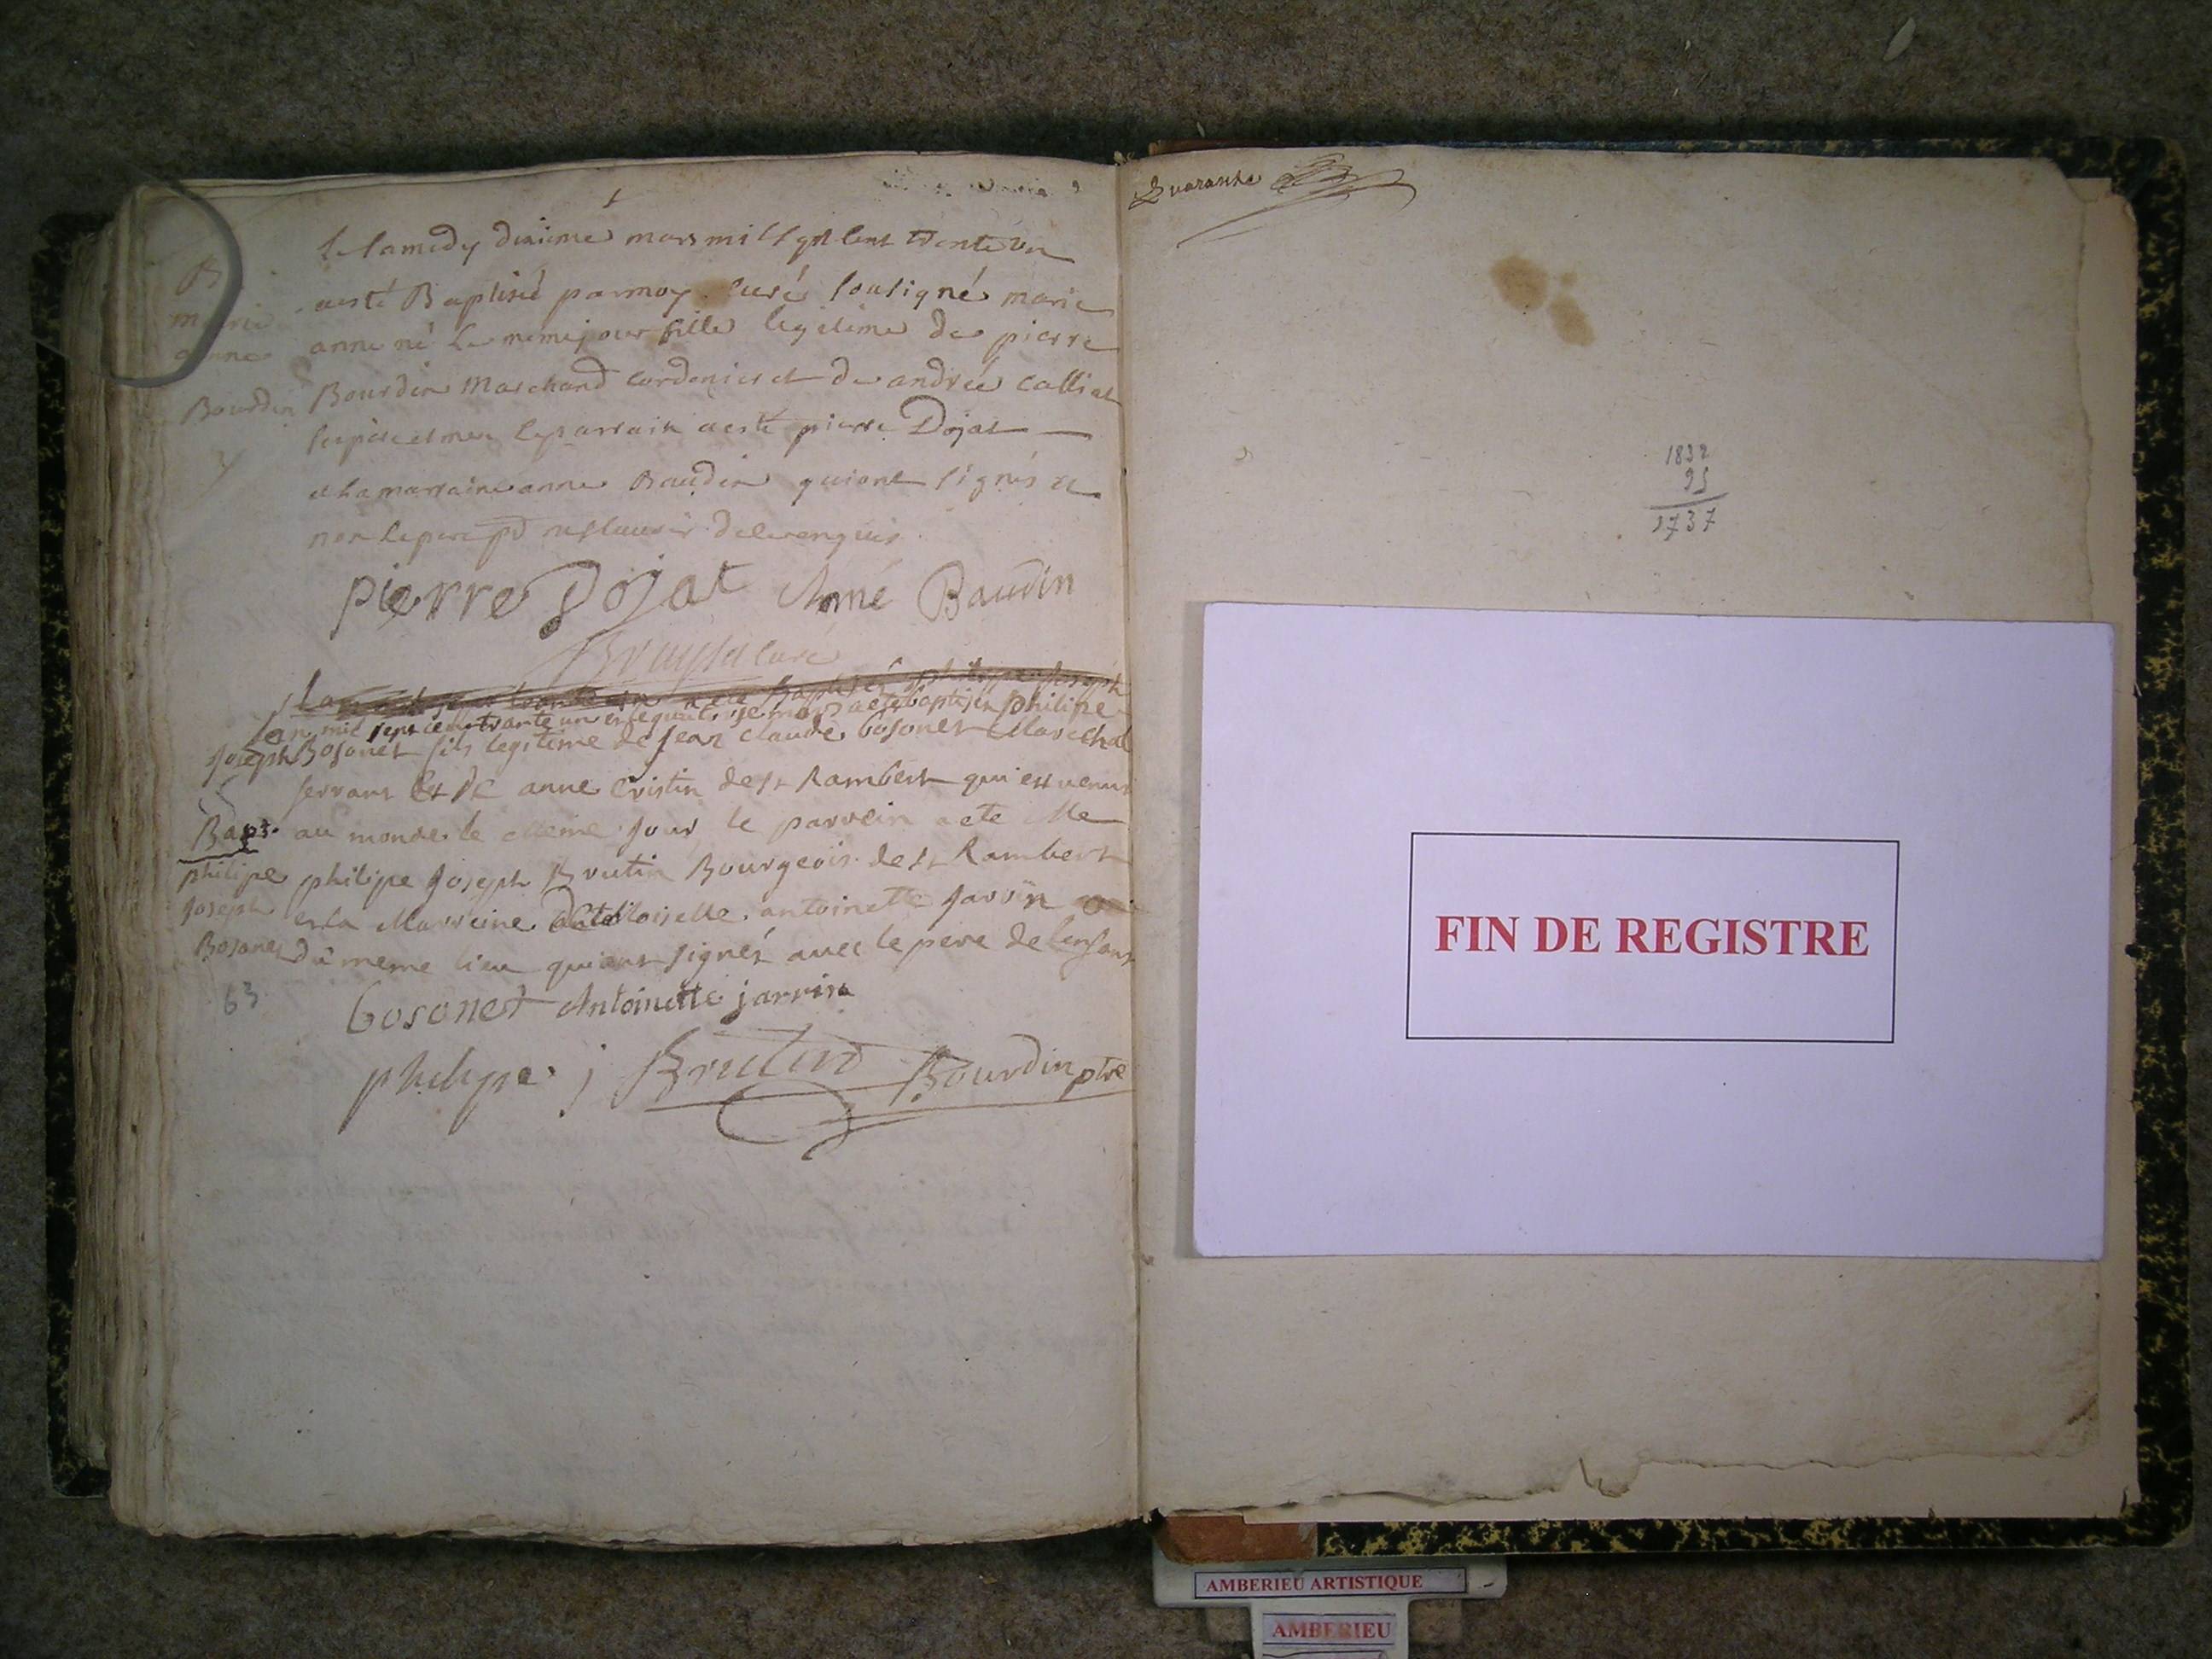 Le samedy dixieme mars mil sept cent trente un
B
a esté Baptisé par moy curé sousigné marie
marie
anne né le meme jour fille legitime de pierre
anne
Bourdin Marchand cordonier et de andrée Calliat
Bourdin
ses pere et mere le parrain a esté pierre Dojat
et la marraine anne Baudin qui ont signés et
non le pere pour ne sçavoir de ce enquis
pierre Dojat Anne Baudin
curé
Baptisé philippe joseph
lan mil sept cent trante un et le quinzieme mars a ete baptisé philipe
joseph Bosonet fils legitime de jean claude bosonet Marechal
ferrant Et De anne Cristin de st Rambert qui est venu
Bapt. au monde le meme jour le parrein a ete Me
philipe philipe joseph Brutin Bourgeois de st Rambert
joseph et la Marreine Demoiselle antoinette jarrin
Bosonet du meme lieu qui ont signés avec le pere de lenfant
63
bosonet Antoinette jarrin
philippe j Brutin Bourdin ptre
Quarante
1832
95
1737
FIN DE REGISTRE
AMBERIEU ARTISTIQUE
AMBERIEU